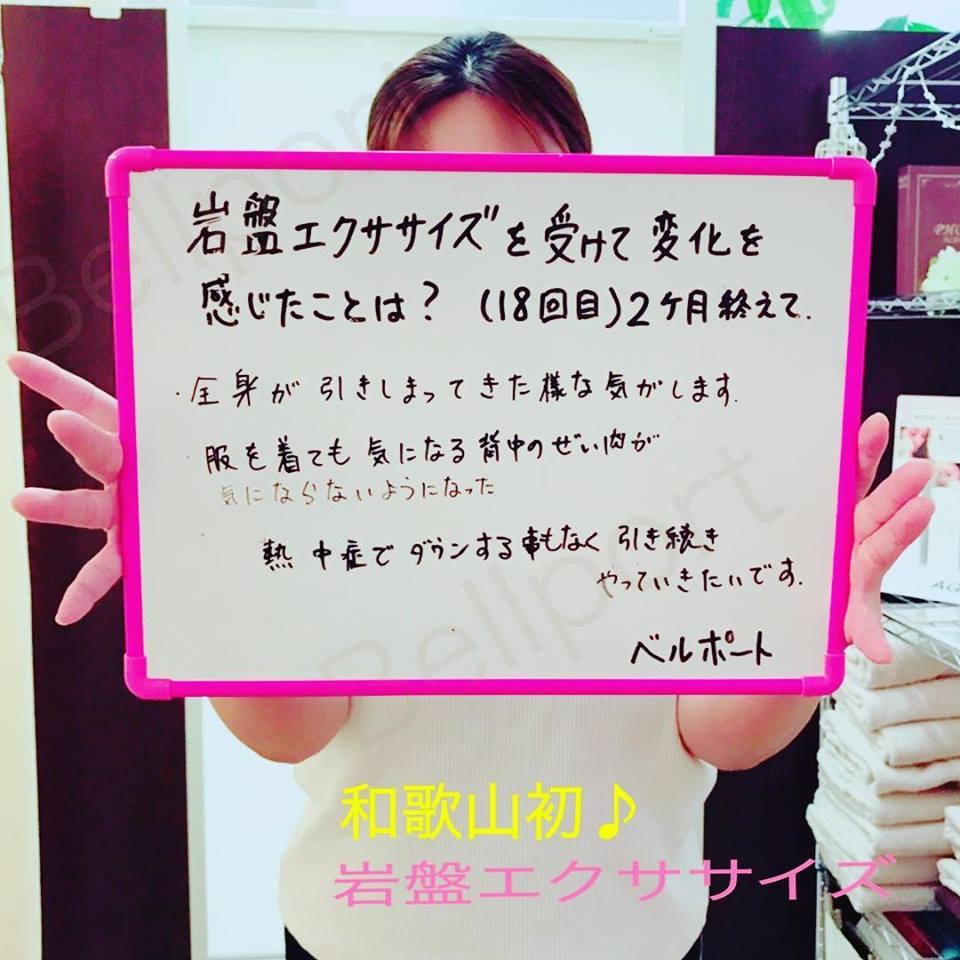 岩盤エクササイズを受けて変化を
感じたことは？(18回目)2ヶ月終えて.
・全身が引きしまってきた様な気がします.
服を着ても気になる背中のぜい肉が
気にならないようになった
熱中症でダウンする事もなく引き続き
やっていきたいです.
ベルポート
和歌山初♪
岩盤エクササイズ
Bellport
Bellport